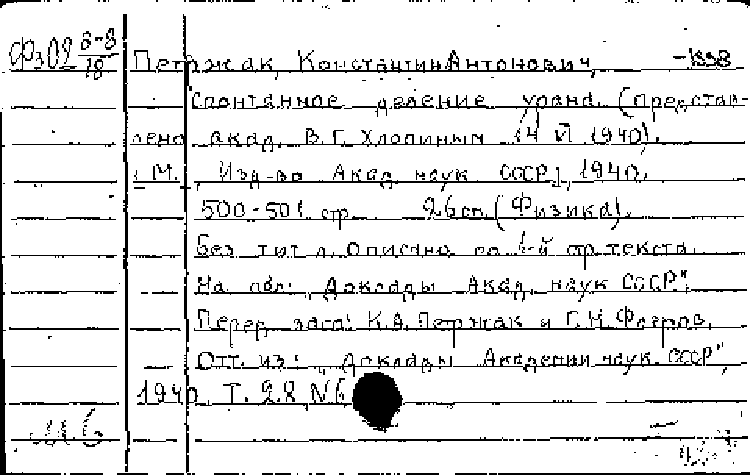 Фз02 8-8/18
Петржак, Константин Антонович,
Спонтанное деление урана. (Представ-
лено акад. В. Г. Хлопиным 14 VI 1940).
[М., Изд-во Акад. наук СССР], 1940.
500-501 стр. 26 см. (Физика).
Без тит. л. Описано по 1-й стр. текста.
На обл.: "Доклады Акад. наук СССР".
Перед загл: К. А. Петржак и Г. Н. Флеров.
Отт. из: "Доклады Академии наук СССР",
1940 Т. 28, № 6
М. Б